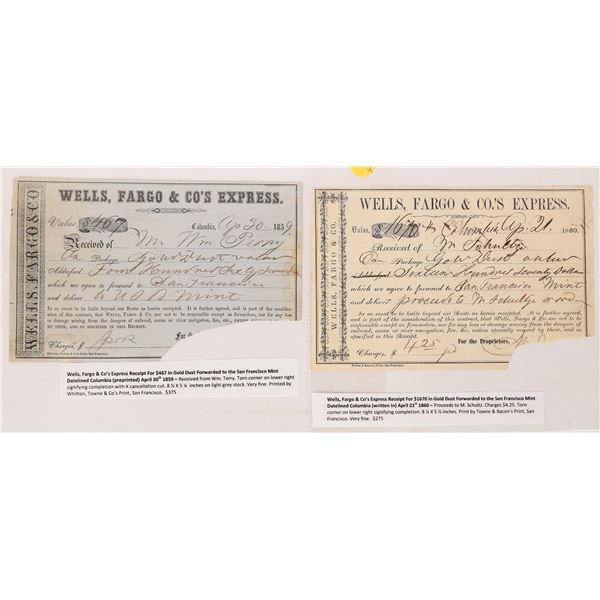 WELLS, FARGO & CO
WELLS, FARGO & CO'S EXPRESS.
Value $467 Columbia, Ap 30 1859
Received of Mr Wm Perry
On Package Gold Dust value
Addressed Four Hundred Sixty Seven
which we agree to forward to San Francisco
and deliver to U S Mint
In no event to be liable beyond our Route as herein receipted. It is further agreed, and is part of the consideration
of this contract, that Wells, Fargo & Co. are not to be responsible except as forwarders, nor for any loss
or damage arising from the dangers of railroad, ocean or river navigation, fire, etc., unless
BY THEM, AND SO SPECIFIED IN THIS RECEIPT.
Charges, $
Wells, Fargo & Co's Express Receipt For $467 in Gold Dust Forwarded to the San Francisco Mint
Datelined Columbia (preprinted) April 30th 1859 – Received from Wm. Terry. Torn corner on lower right
signifying completion with X cancellation cut. 8 ¾ X 5 ¼ inches on light grey stock. Very fine. Printed by
Whitton, Towne & Co's Print, San Francisco. $375
WELLS, FARGO & CO.
WELLS, FARGO & CO.'S EXPRESS.
Value, $1670 Columbia Ap. 21. 1860.
Received of M Schultze
On Package Gold Dust value
Addressed Sixteen Hundred Seventy Dollars
which we agree to forward to San Francisco Mint
and deliver proceeds to M Schultze or ord
In no event to be liable beyond our Route as herein receipted. It is further agreed,
and is part of the consideration of this contract, that Wells, Fargo & Co. are not to be
responsible except as forwarders, nor for any loss or damage arising from the dangers of
railroad, ocean or river navigation, fire, &c., unless specially insured by them, and so
specified in this Receipt.
For the Proprietors,
Charges, $ 4.25 pd
Wells, Fargo & Co's Express Receipt For $1670 in Gold Dust Forwarded to the San Francisco Mint
Datelined Columbia (written in) April 21st 1860 – Proceeds to M. Schultz. Charges $4.25. Torn
corner on lower right signifying completion. 8 ½ X 5 ½ inches. Print by Towne & Bacon's Print, San
Francisco. Very fine. $275